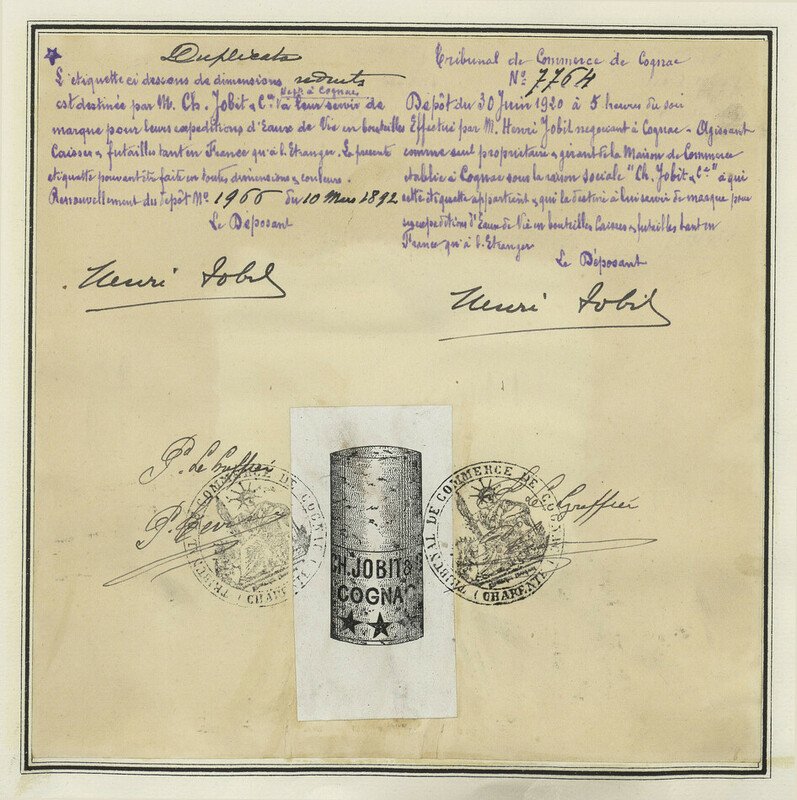 Duplicata
L'étiquette ci dessous de dimensions réduits
Negt à Cognac
est destinée par M. Ch. Jobit & Cie à leur servir de
marque pour leurs expéditions d'Eaux de Vie en bouteilles
Caisses & futailles tant en France qu'à l'Etranger. La présente
étiquette pouvant être fait en toutes dimensions & couleurs.
Renouvellement du dépôt No 1966 du 10 Mars 1892
Le Déposant
Henri Jobit
Tribunal de Commerce de Cognac
No 7764
Dépôt du 30 Juin 1920 à 5 heures du soir
Effectué par M. Henri Jobit négociant à Cognac - Agissant
comme seul propriétaire & gérant de la Maison de Commerce
établie à Cognac sous la raison sociale "Ch. Jobit & Cie" à qui
cette étiquette appartient & qui la destine à lui servir de marque pour
ses expéditions d'Eaux de Vie en bouteilles Caisses & futailles tant en
France qu'à l'Etranger
Le Déposant
Henri Jobit
P. Le Greffier
TRIBUNAL DE COMMERCE DE COGNAC
(CHARENTE)
CH. JOBIT &
COGNAC
Le Greffier
TRIBUNAL DE COMMERCE DE COGNAC
(CHARENTE)